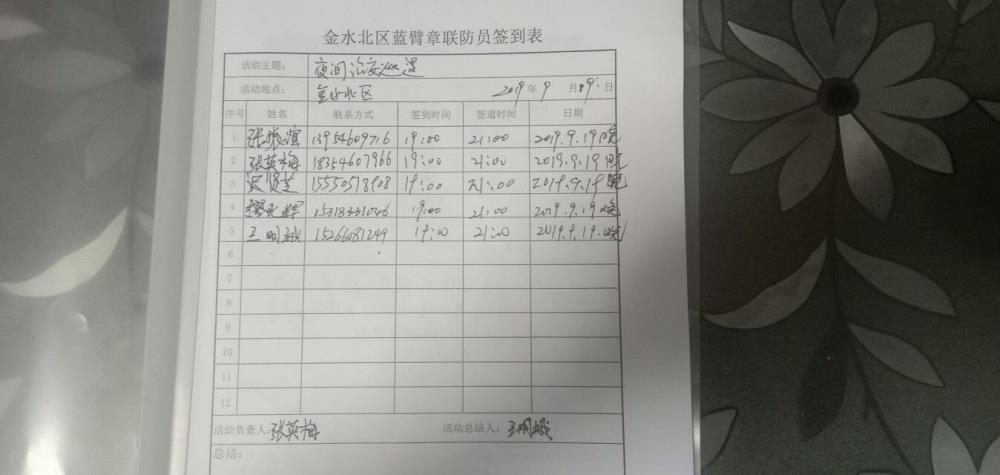 金水北区蓝臂章联防员签到表
活动主题： 夜间治安巡逻
活动地点： 金水北区 2019年9月19日
序号 姓名 联系方式 签到时间 签退时间 日期
1 张 13954609716 19:00 21:00 2019.9.19晚
2 张英梅 18354607966 19:00 21:00 2019.9.19晚
3 15550518908 19:00 21:00 2019.9.19晚
4 辉 15318331046 19:00 21:00 2019.9.19晚
5 王明 15266081249 19:00 21:00 2019.9.19.晚
6
7
8
9
10
11
12
活动负责人：张英梅 活动总结人：王明
总结：